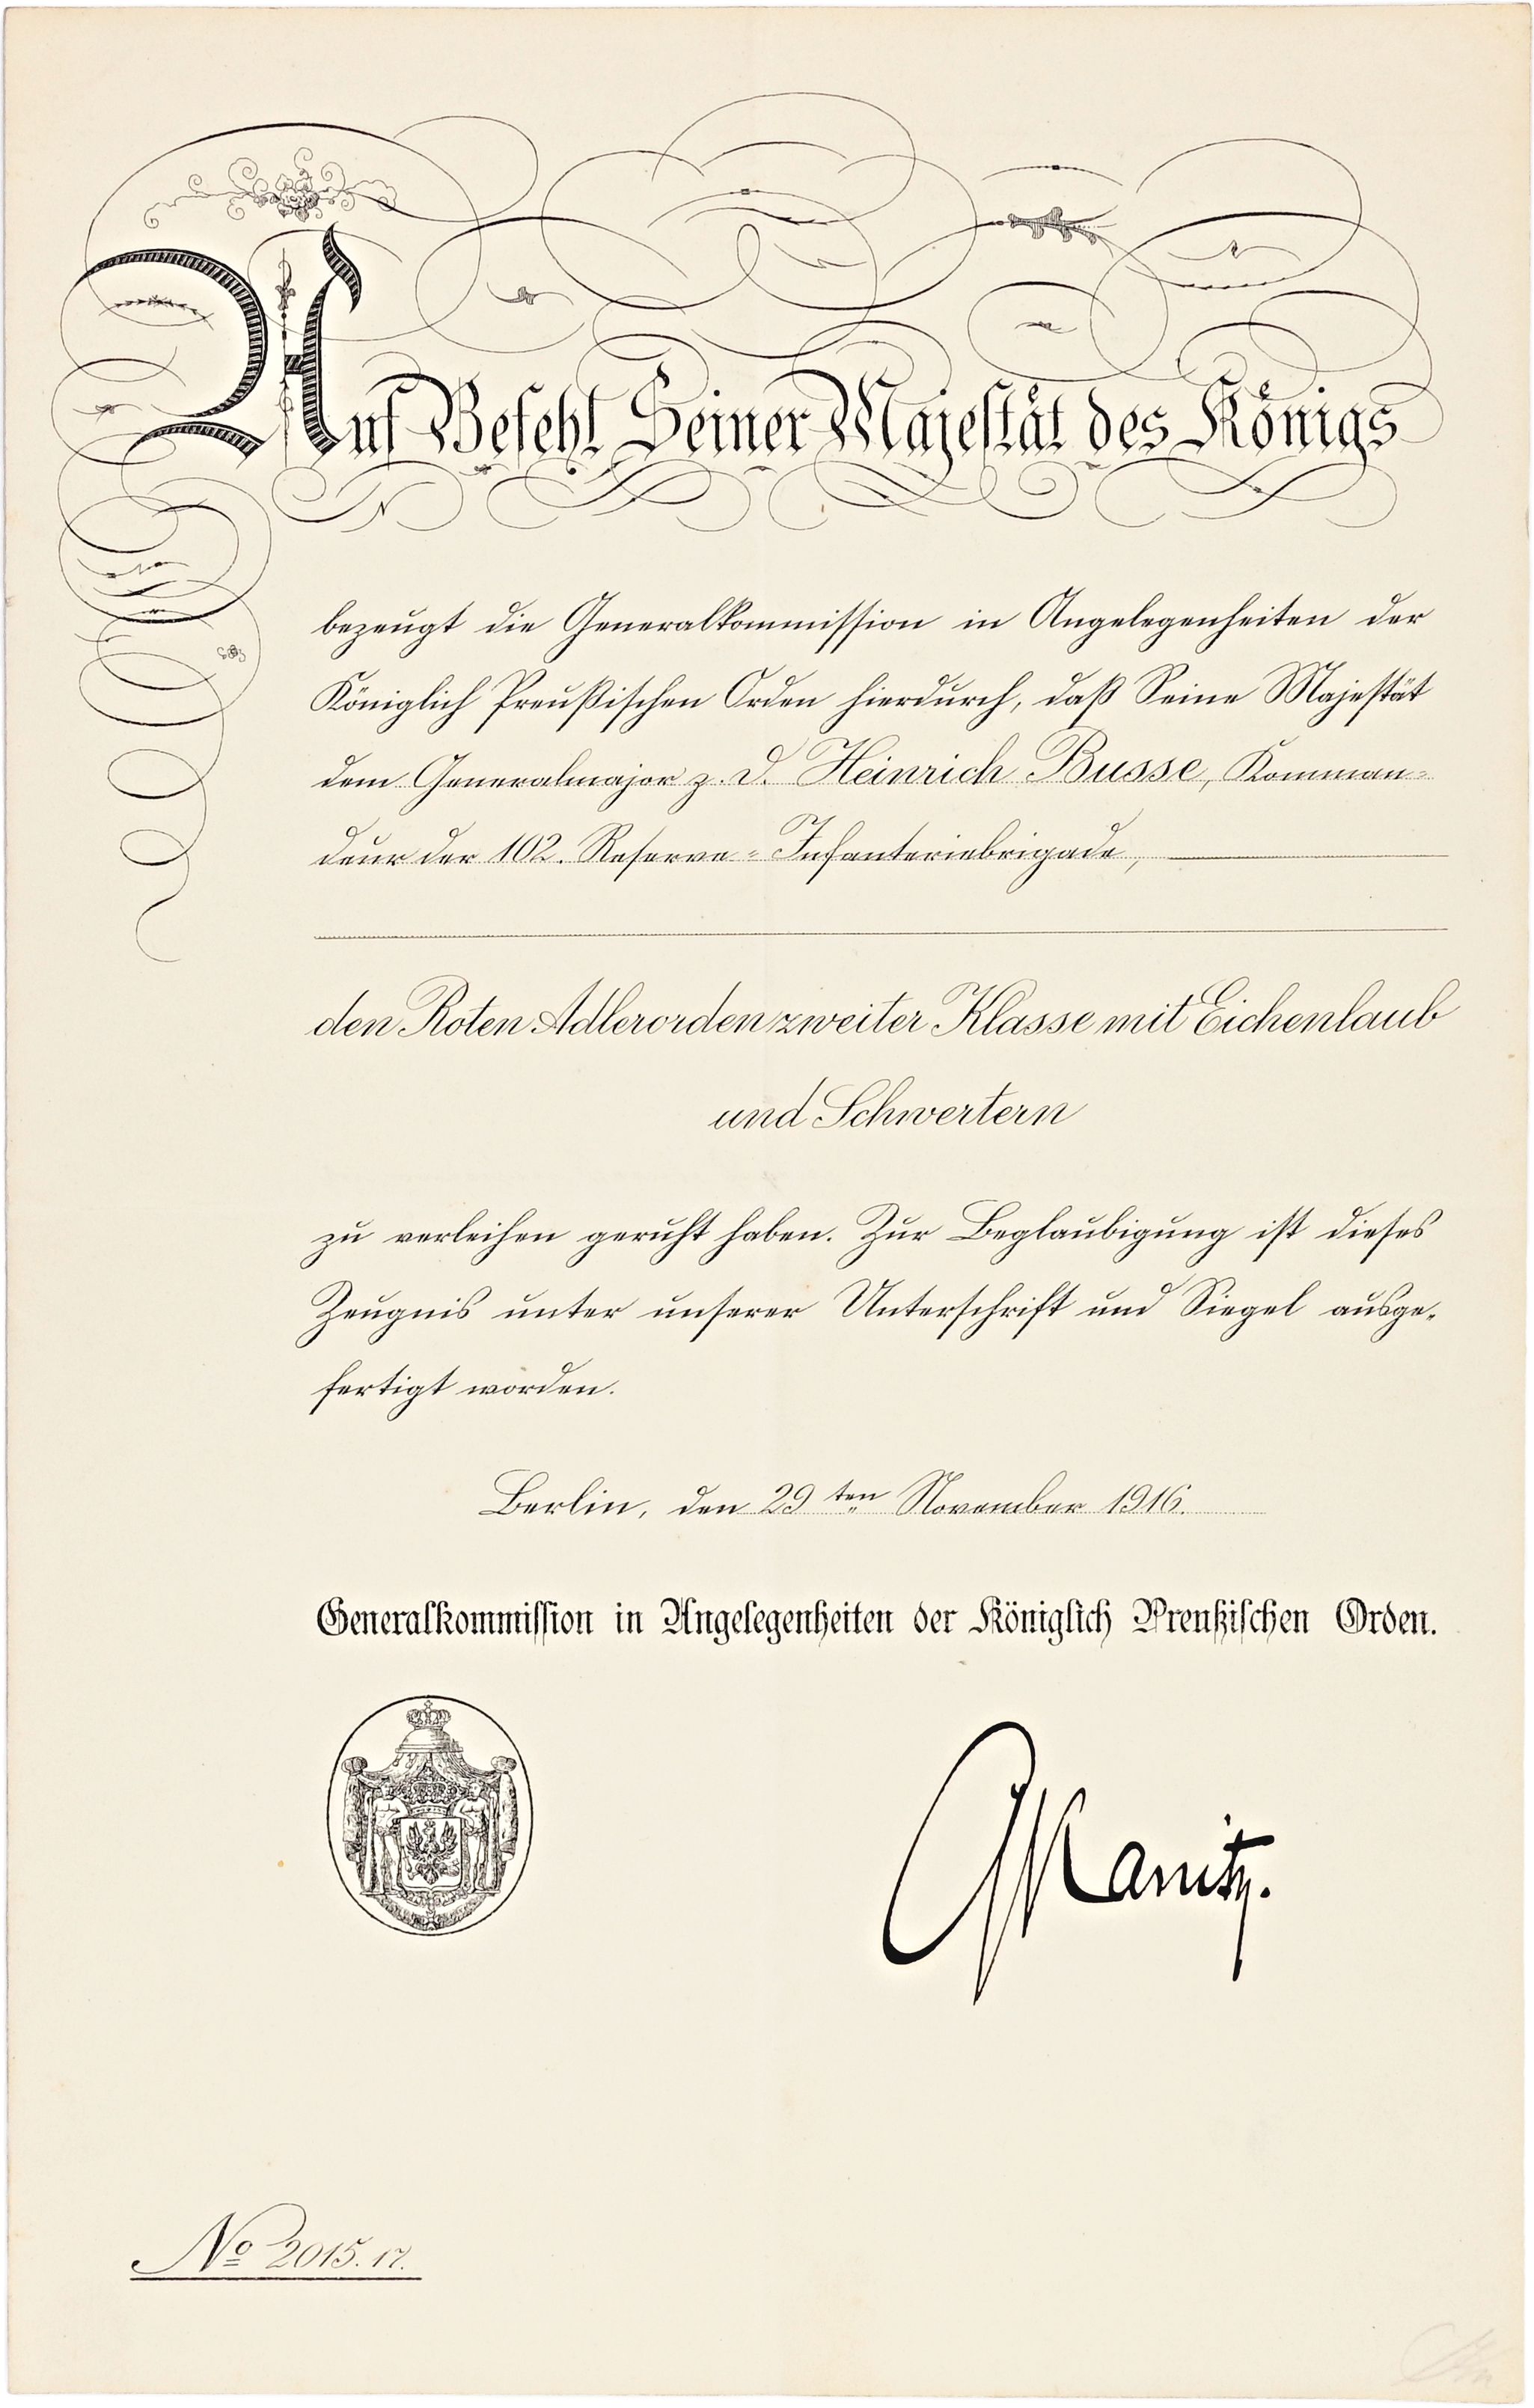 Auf Befehl Seiner Majestät des Königs
bezeugt die Generalkommission in Angelegenheiten der
Königlich Preußischen Orden hierdurch, daß Seine Majestät
dem Generalmajor z. D. Heinrich Busse, Komman-
deur der 102. Reserve-Infanteriebrigade,
den Roten Adlerorden zweiter Klasse mit Eichenlaub
und Schwertern
zu verleihen geruht haben. Zur Beglaubigung ist dieses
Zeugnis unter unserer Unterschrift und Siegel ausge-
fertigt worden.
Berlin, den 29ten November 1916.
Generalkommission in Angelegenheiten der Königlich Preußischen Orden.
Kanitz.
No 2015. 17.